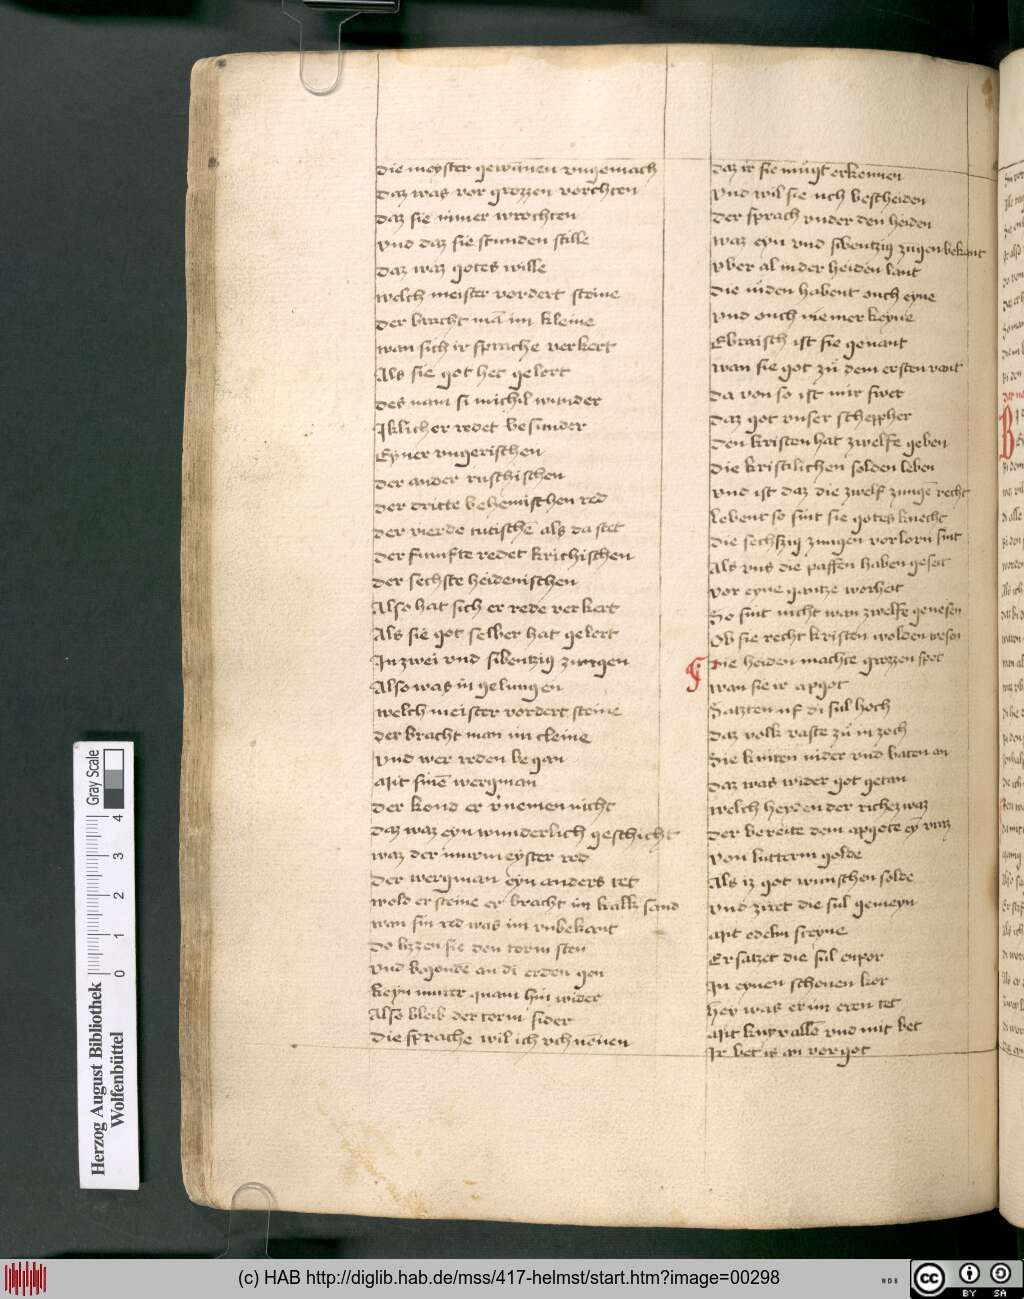 die meyster gewūnen vngemach
daz was vor grozzen vorchten
daz sie ūmer wrochten
vnd daz sie stunden stille
daz waz gotes wille
welch meister vordert steine
der bracht mā im kleine
wan sich ir sprache verkert
Als sie got het gelert
des nam si michil wunder
Iklicher redet besunder
Eyner vngerischen
der ander ruschischen
der dritte behemischen red
der vierde tutischē als da stet
der funfte redet krichischen
der sechste heidenischen
Also hat sich er rede verkert
Als sie got selber hat gelert
In zwei vnd sibentzig zungen
Also was in gelungen
welch meister vordert steine
der bracht man im cleine
vnd wer reden began
Mit sinē wergman
der kond er v'nemen nicht
daz waz eyn wunderlich geschicht
waz der murmeyster red
der wergman eyn anders tet
wold er steine er bracht im kalk sand
wan sin red was im vnbekant
Do lizzen sie den torm sten
vnd begonde an di erden gen
keyn murer quam hin wider
Also bleib der torm sider
die sprache wil ich vch nēnen
daz ir sie mugt erkennen
vnd wil sie uch bescheiden
der sprach vnder den heiden
waz eyn vnd sibentzig zūgen bekant
vber al in der heiden lant
die iuden habent ouch eyne
vnd ouch niemer keyne
Ebraisch ist sie genant
wan sie got zu dem ersten vant
da von so ist mir swer
daz got vnser scheppher
den kristen hat zwelfe geben
die kristlichen solden leben
vnd ist daz die zwelf zungē recht
lebent so sint sie gotes knecht
die sechszig zungen vorlorn sint
Als vns die paffen haben geseit
vor eyne gantze worheit
So sint nicht wan zwelfe genesen
Ob sie recht kristen wolden wesen
Die heiden machte grozzen spot
wan sie ir apgot
Satzten uf di sul hoch
daz volk vaste zu im zoch
Sie kniten nider vnd baten an
daz was wider got getan
welch heyden der riche waz
der bereite dem apgote
von luterm golde
Als iz got wunschen solde
vnd ziret die sul gemeyn
Mit edelm steyne
Er satzet die sul enpor
In eynen schonen kor
hey was er im eren tet
Mit knyvalle vnd mit bet
Ir bet is an vorgot
Herzog August Bibliothek
Wolfenbüttel
Gray Scale
0 1 2 3 4
(c) HAB http://diglib.hab.de/mss/417-helmst/start.htm?image=00298
WDB
cc
BY SA